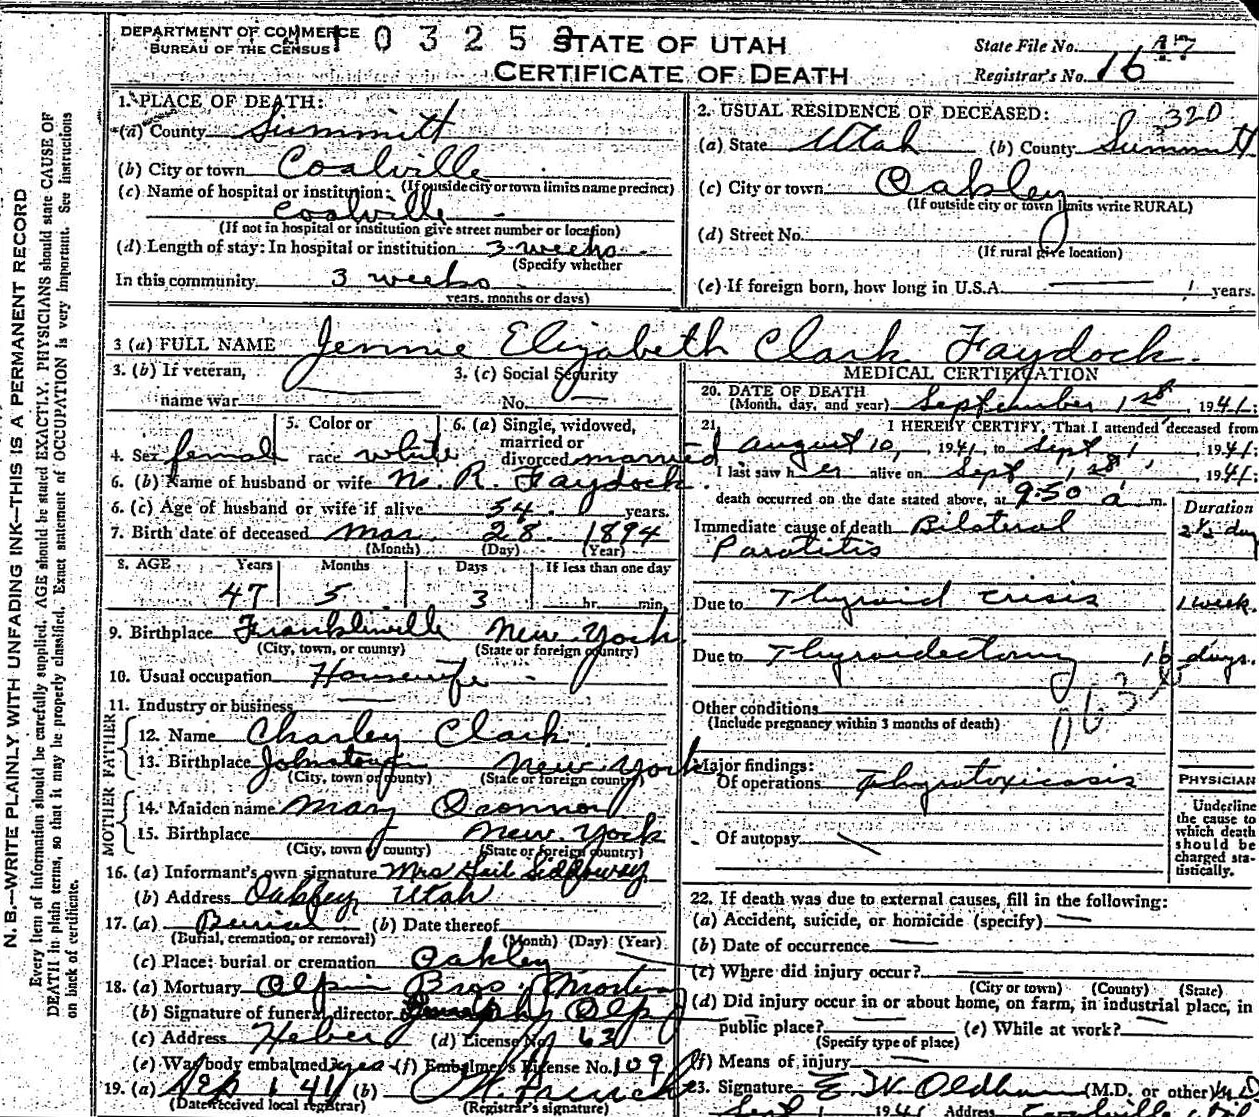 DEPARTMENT OF COMMERCE
BUREAU OF THE CENSUS
103259
STATE OF UTAH
CERTIFICATE OF DEATH
State File No. 47
Registrar's No. 16
N. B.—WRITE PLAINLY WITH UNFADING INK—THIS IS A PERMANENT RECORD
Every item of information should be carefully supplied. AGE should be stated EXACTLY. PHYSICIANS should state CAUSE OF
DEATH in plain terms, so that it may be properly classified. Exact statement of OCCUPATION is very important. See instructions
on back of certificate.
1. PLACE OF DEATH:
(a) County Summitt
(b) City or town Coalville
(If outside city or town limits name precinct)
(c) Name of hospital or institution:
Coalville
(If not in hospital or institution give street number or location)
(d) Length of stay: In hospital or institution 3 weeks
(Specify whether
In this community 3 weeks
years, months or days)
2. USUAL RESIDENCE OF DECEASED: 320
(a) State Utah (b) County Summitt
(c) City or town Oakley
(If outside city or town limits write RURAL)
(d) Street No.
(If rural give location)
(e) If foreign born, how long in U.S.A. years.
3 (a) FULL NAME Jennie Elizabeth Clark Faydock
3. (b) If veteran,
name war
3. (c) Social Security
No.
4. Sex female
5. Color or
race white
6. (a) Single, widowed,
married or
divorced married
6. (b) Name of husband or wife N. R. Faydock
6. (c) Age of husband or wife if alive 54 years.
7. Birth date of deceased Mar. 28 1894
(Month) (Day) (Year)
8. AGE Years Months Days If less than one day
47 5 3 hr. min.
9. Birthplace Franklinville New York
(City, town, or county) (State or foreign country)
10. Usual occupation Housewife
11. Industry or business
FATHER
12. Name Charley Clark
13. Birthplace Johnstown New York
(City, town or county) (State or foreign country)
MOTHER
14. Maiden name Mary Oconnor
15. Birthplace New York
(City, town or county) (State or foreign country)
16. (a) Informant's own signature Mrs Gail Siddoway
(b) Address Oakley Utah
17. (a) Burial (b) Date thereof
(Burial, cremation, or removal) (Month) (Day) (Year)
(c) Place: burial or cremation Oakley
18. (a) Mortuary Olpin Bros.
(b) Signature of funeral director
(c) Address Heber (d) License No. 63
(e) Was body embalmed? yes (f) Embalmer's License No. 109
19. (a) Sep 1 41 (b)
(Date received local registrar) (Registrar's signature)
MEDICAL CERTIFICATION
20. DATE OF DEATH
(Month, day, and year) September 1st, 1941.
21. I HEREBY CERTIFY, That I attended deceased from
August 10, 1941, to Sept 1, 1941;
I last saw her alive on Sept 1st, 1941;
death occurred on the date stated above, at 9:50 a m.
Duration
Immediate cause of death Bilateral 2½ day
Parotitis
Due to Thyroid crisis 1 week.
Due to Thyroidectomy 16 days.
063
Other conditions
(Include pregnancy within 3 months of death)
Major findings:
Of operations Thyrotoxicosis
Of autopsy
PHYSICIAN
Underline
the cause to
which death
should be
charged sta-
tistically.
22. If death was due to external causes, fill in the following:
(a) Accident, suicide, or homicide (specify)
(b) Date of occurrence
(c) Where did injury occur?
(City or town) (County) (State)
(d) Did injury occur in or about home, on farm, in industrial place, in
public place? (e) While at work?
(Specify type of place)
(f) Means of injury
23. Signature E. W. Oldham (M.D. or other) M.D.
Sept 1 1941 Address